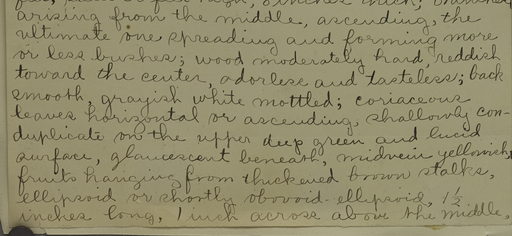 arising from the middle, ascending, the
ultimate one spreading and forming more
or less bushes; wood moderately hard, reddish
toward the center, odorless and tasteless; back
smooth, grayish white mottled; coriaceous
leaves horizontal or ascending, shallowly con-
duplicate on the upper deep green and lucid
surface, glaucescent beneath, midvein yellowish,
fruits hanging from thickened brown stalks,
ellipsoid or shortly obovoid-ellipsoid, 1½
inches long, 1 inch across above the middle,